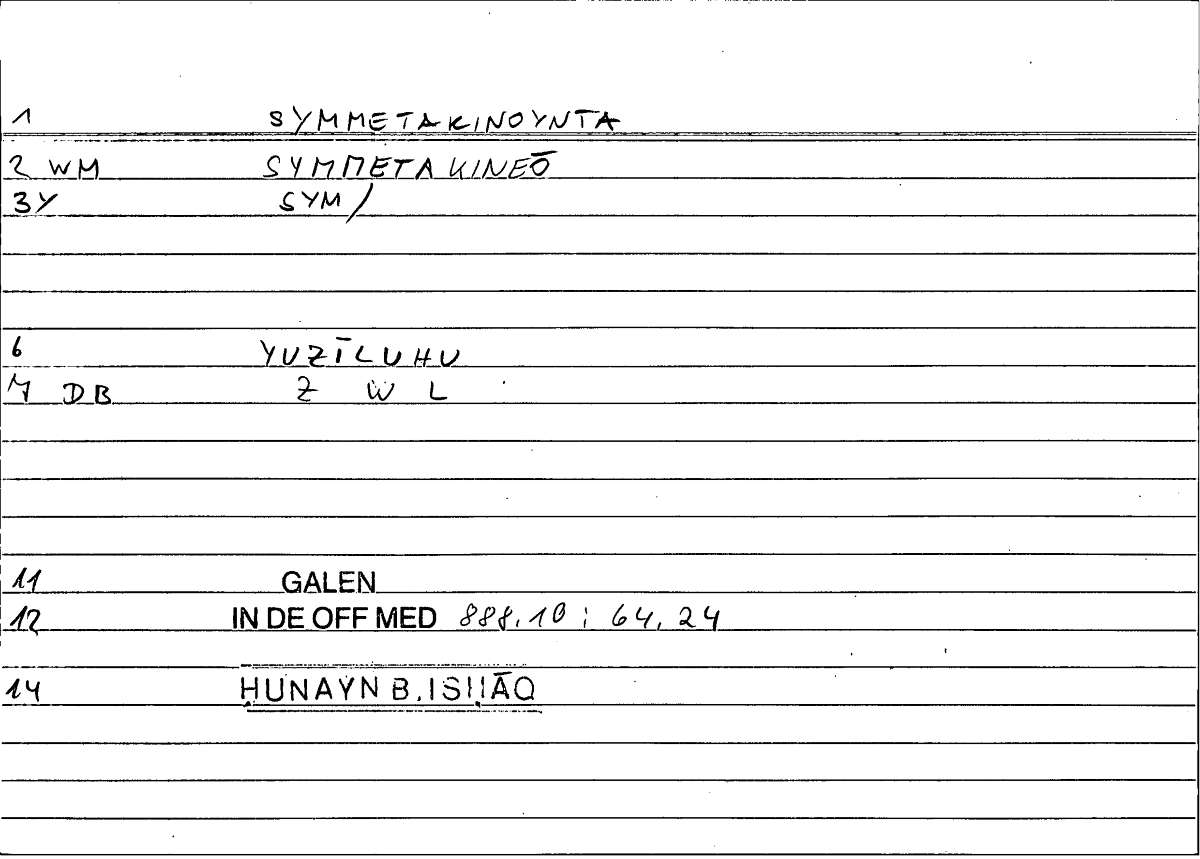 1 SYMMETAKINOYNTA
2 WM SYMMETAKINEŌ
3Y SYM/
6 YUZĪLUHU
7 DB Z W L
11 GALEN
12 IN DE OFF MED 888,10 ; 64,24
14 ḤUNAYN B. ISḤĀQ